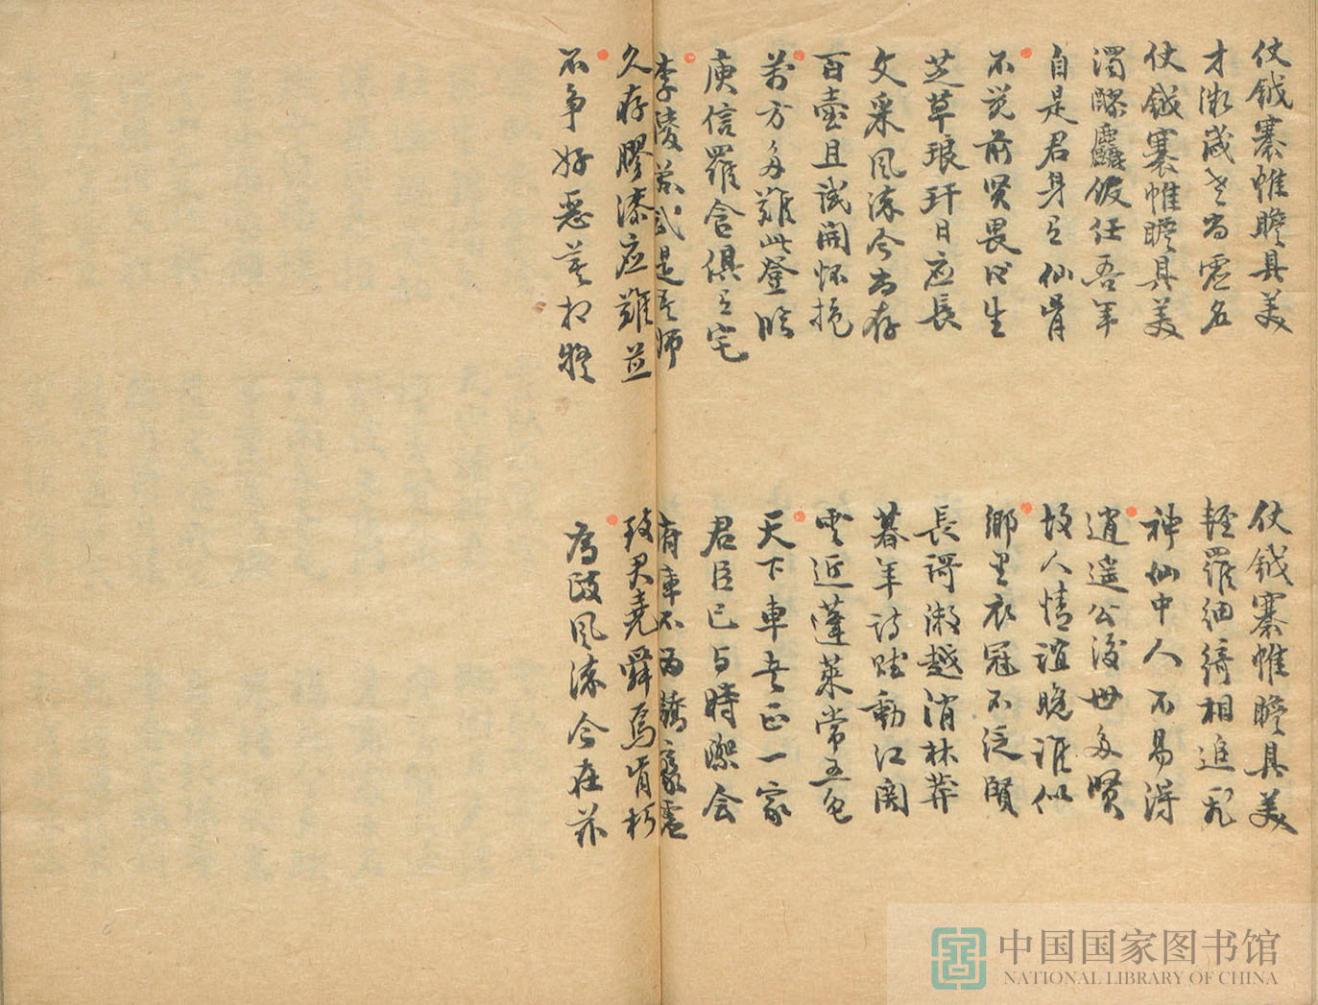 仗鉞褰帷瞻具美
才微歲老尚虛名
仗鉞褰帷瞻具美
濁醪麤飯任吾年
自是君身有仙骨
不覺前賢畏後生
芝草琅玕日應長
文采風流今尚存
百壺且試開懷抱
萬方多難此登臨
庾信羅含俱有宅
李陵蘇武是吾師
久存膠漆應難並
不爭好惡莫相疑
仗鉞褰帷瞻具美
輕羅細綺相追飛
神仙中人不易得
逍遙公後世多賢
故人情誼晚誰似
鄉里衣冠不乏賢
長謌激越梢林莽
暮年詩賦動江関
雲近蓬萊常五色
天下車書正一家
君臣已与時際会
府庫不為驕豪虛
致君堯舜焉肯朽
為政風流今在茲
中国国家图书馆
NATIONAL LIBRARY OF CHINA